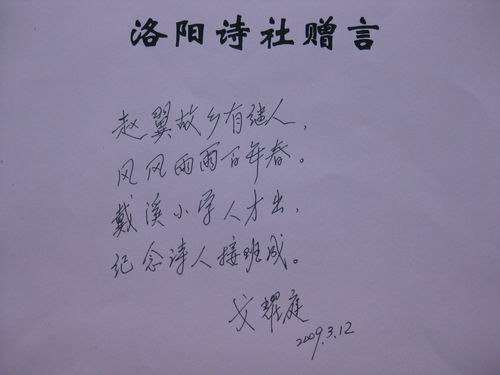 洛阳诗社赠言
赵翼故乡有继人，
风风雨雨百年春。
戴溪小学人才出，
纪念诗人接班成。
戈耀庭
2009.3.12